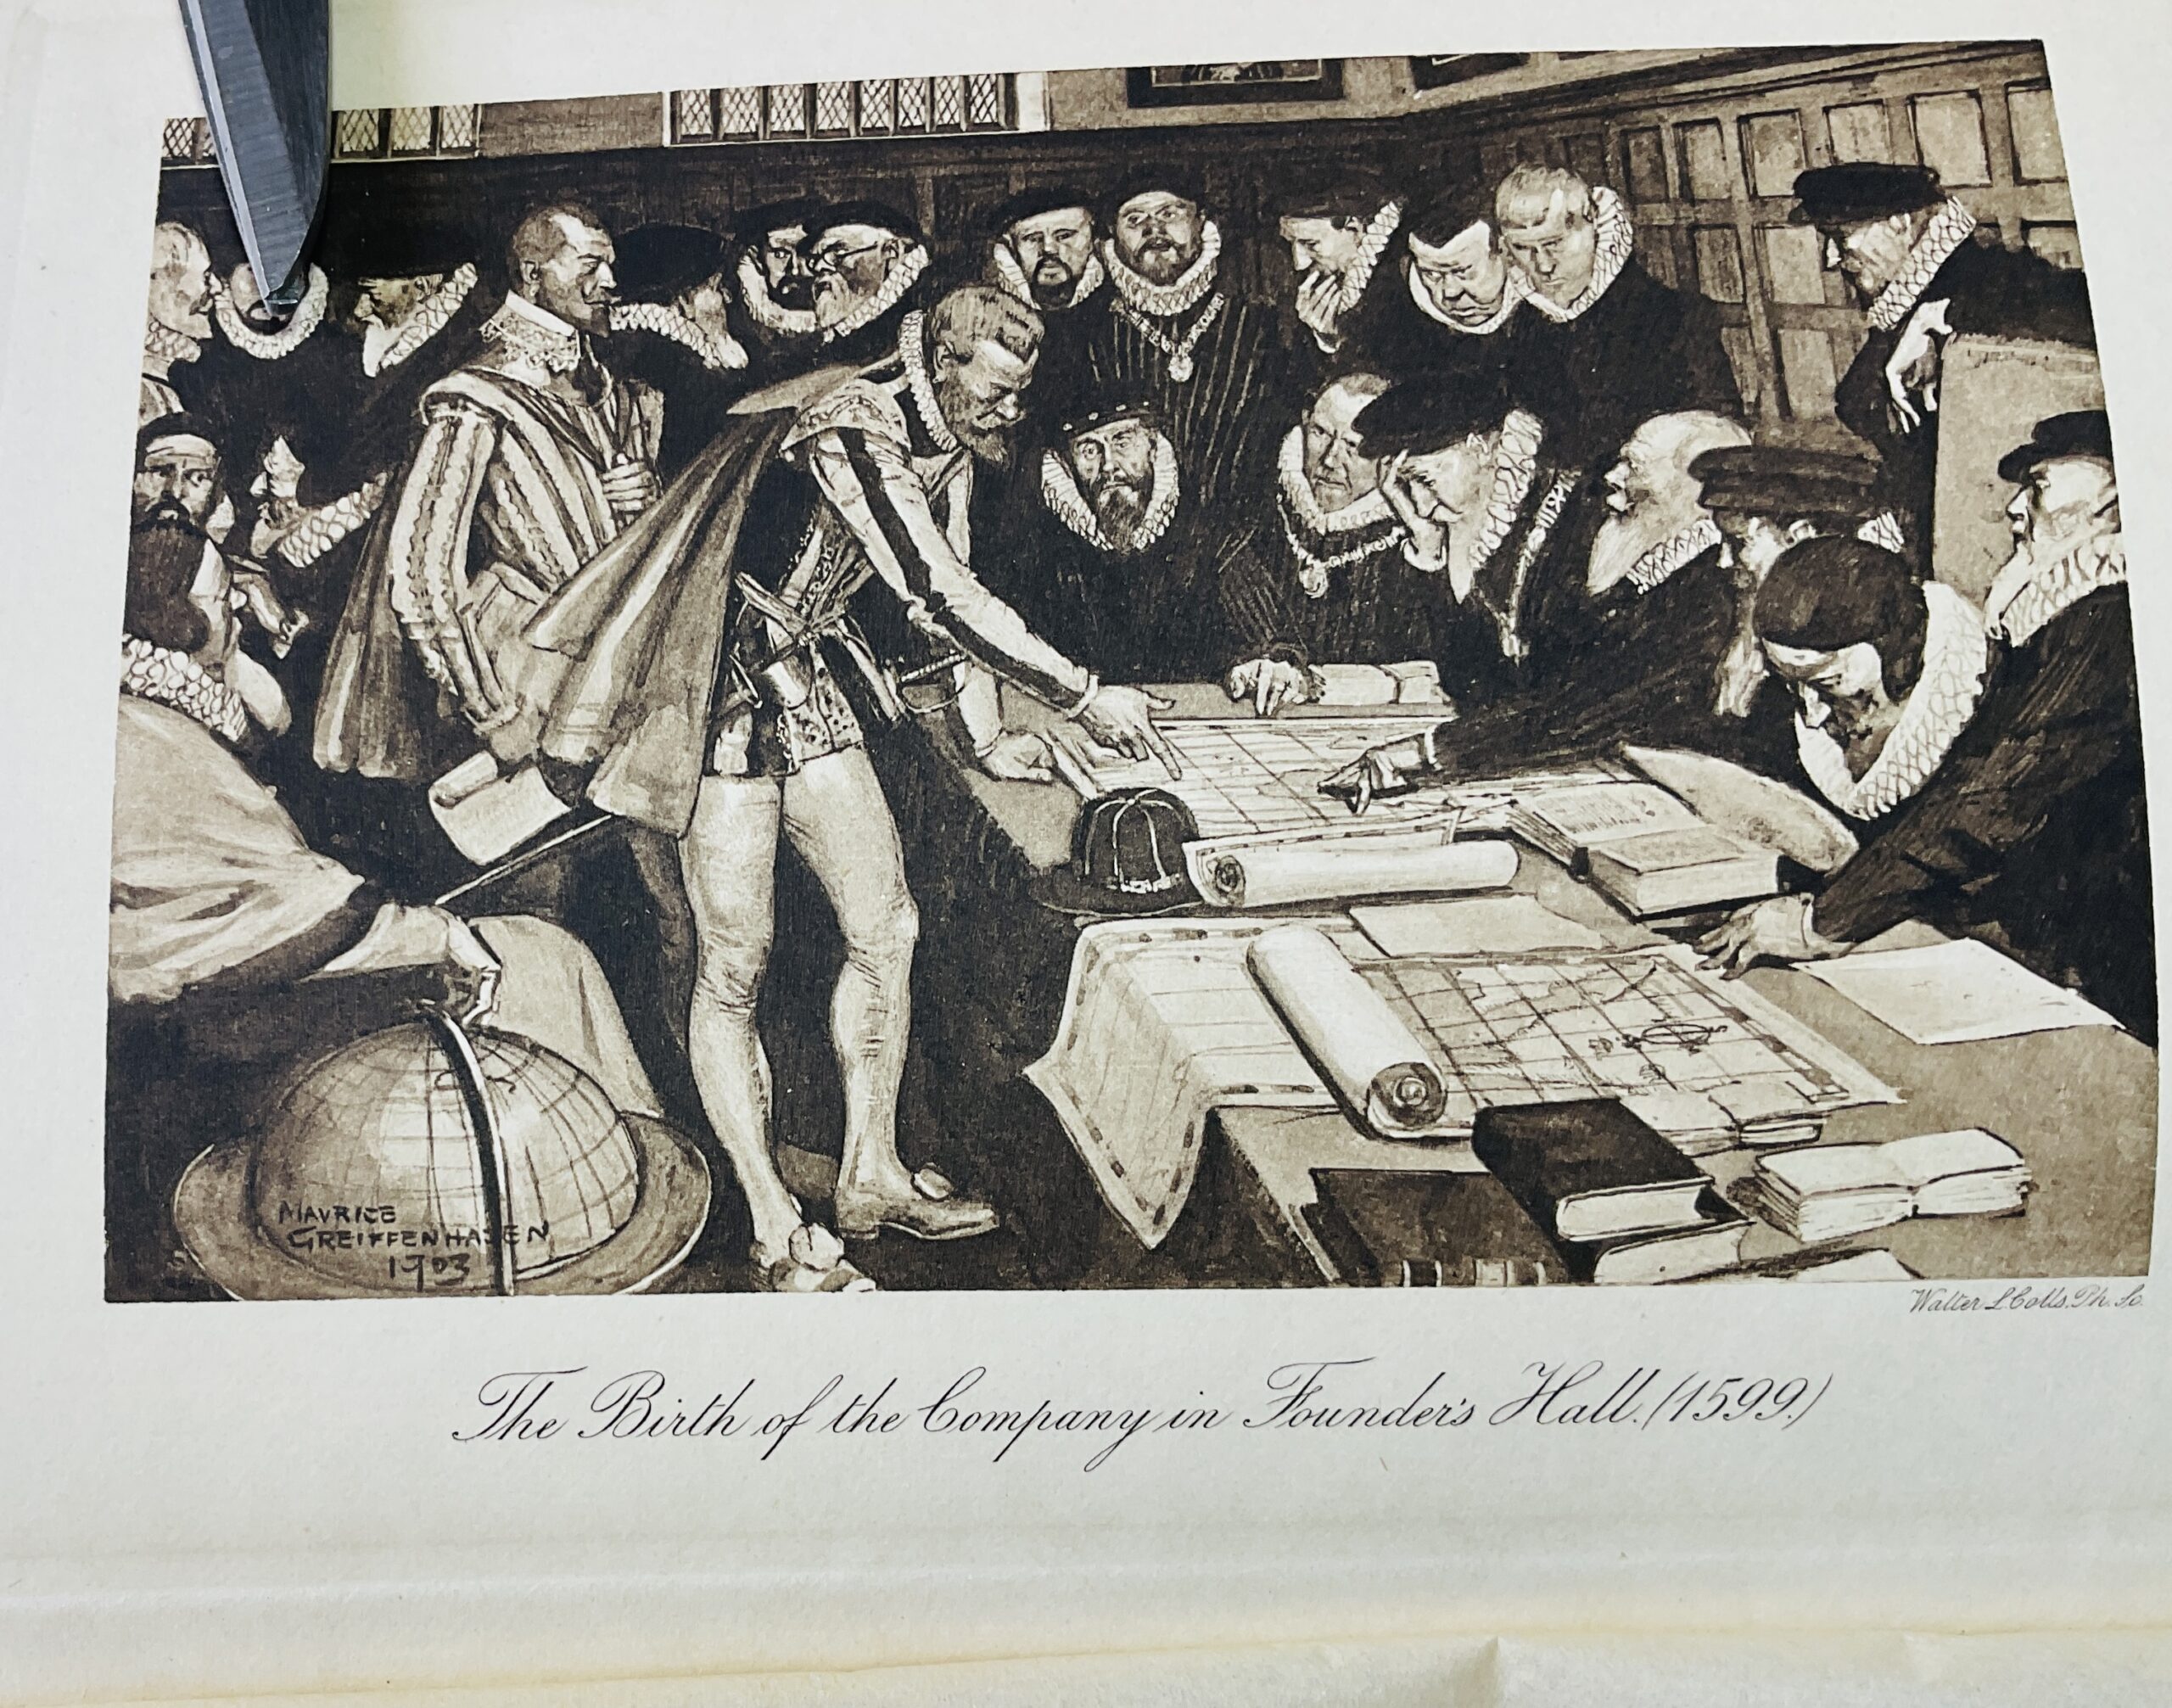 MAVRICE
GREIFFENHAGEN
1903
Walter L. Colls. Ph. Sc.
The Birth of the Company in Founder's Hall. (1599.)